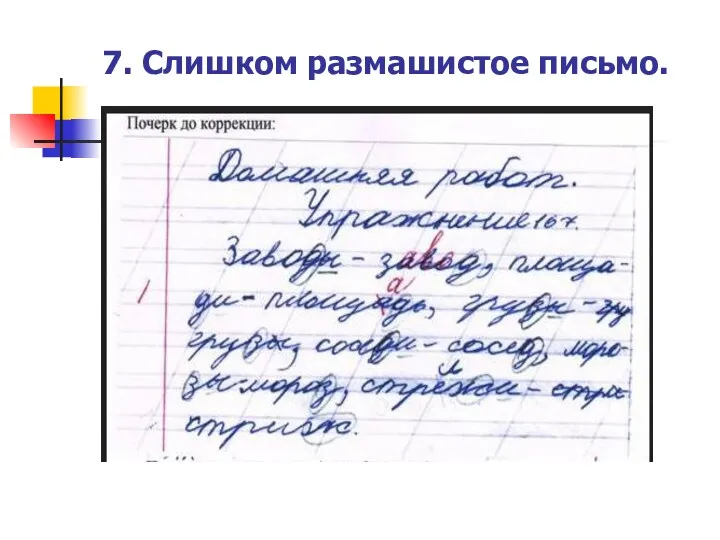 7. Слишком размашистое письмо.
Почерк до коррекции:
Домашняя работ.
Упражнение 167.
Заводы - завод, площа-
ди - площадь, грузы - гру
грузы, соседи - сосед, моро-
зы мороз, стрежи - стри
стриж.